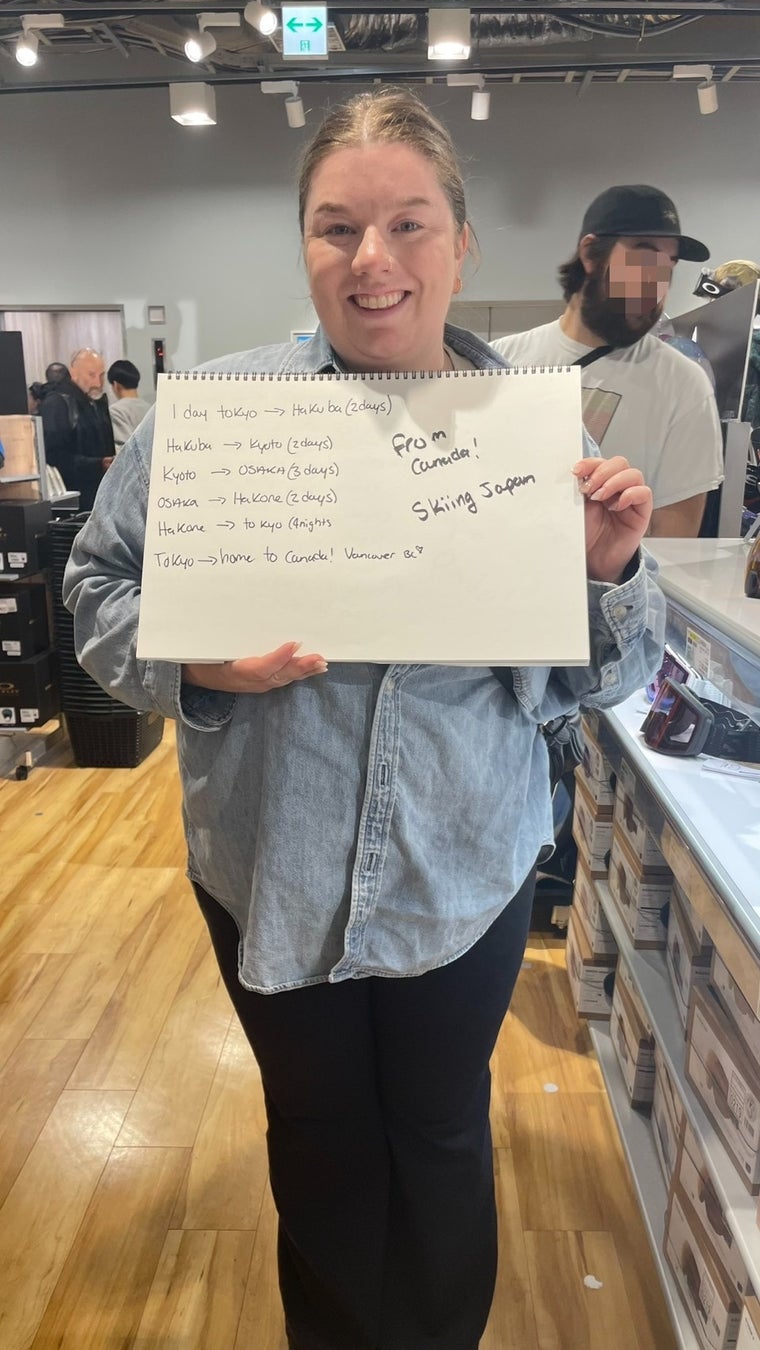 1 day tokyo → Hakuba (2days)
Hakuba → Kyoto (2days)
Kyoto → OSAKA (3 days)
OSAKA → Hakone (2 days)
Hakone → tokyo (4nights
Tokyo → home to Canada! Vancouver BC♡
From
Canada!
Skiing Japan